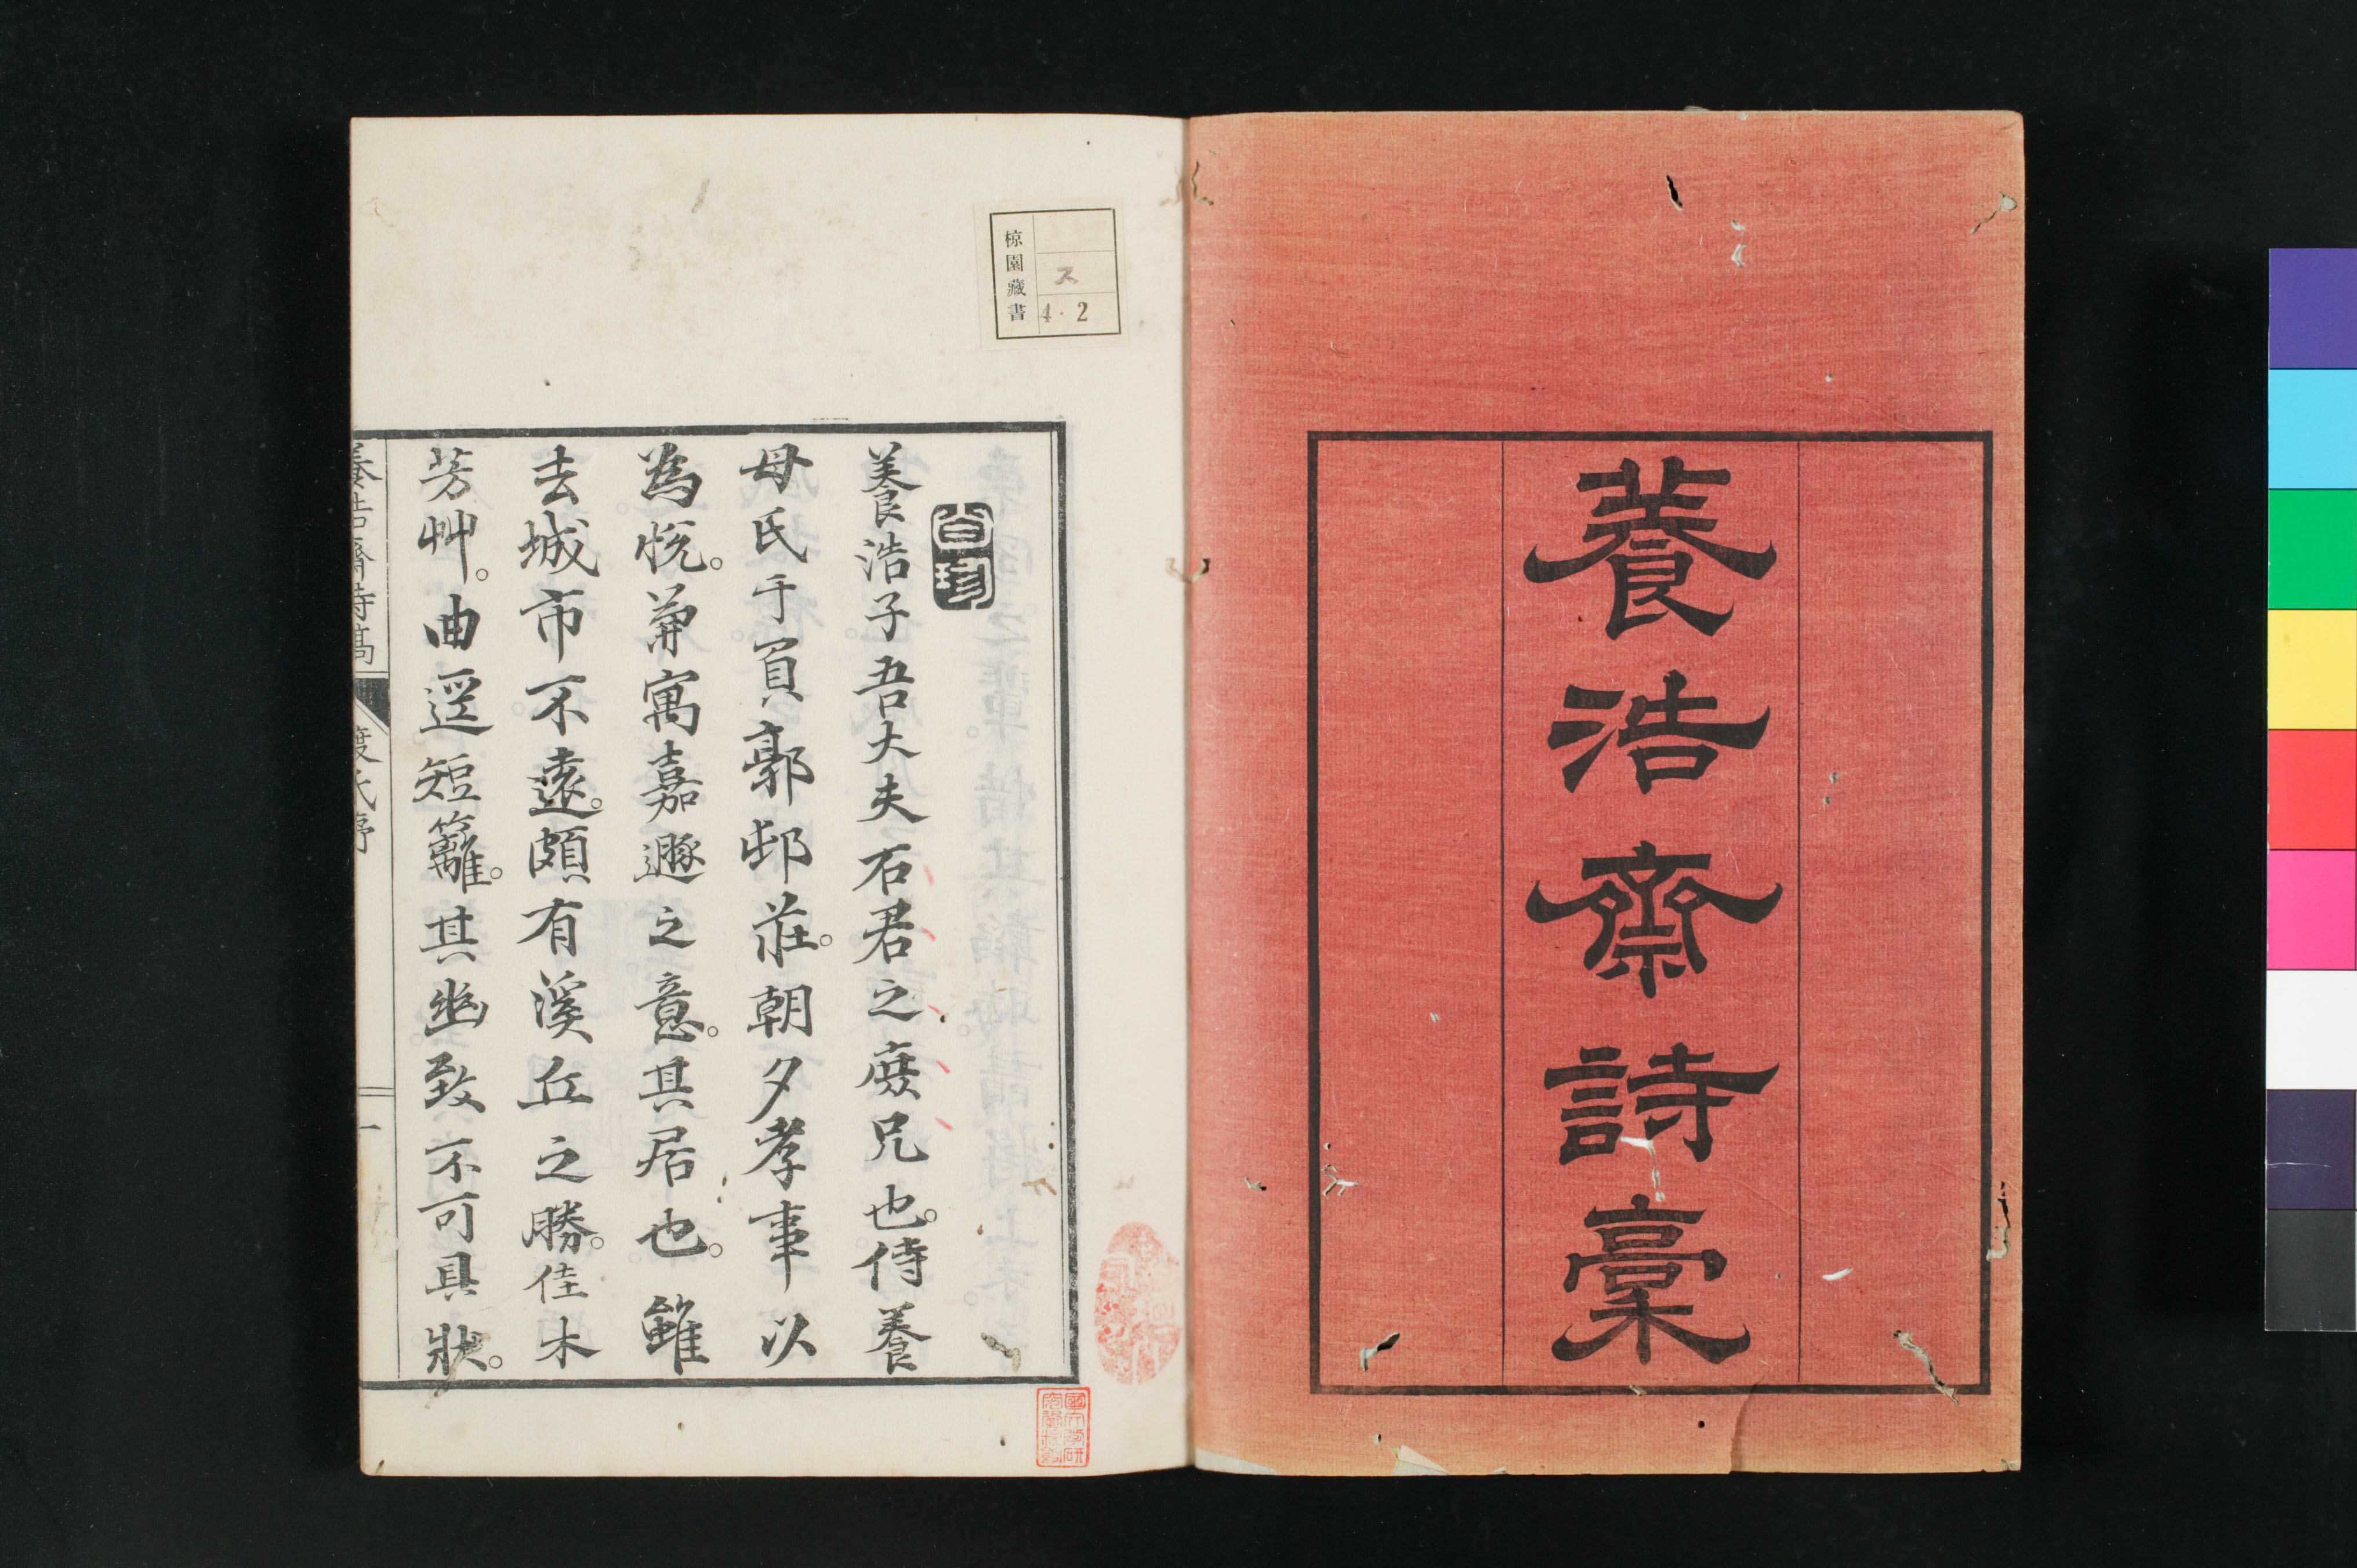 養浩齋詩稾
椋園藏書
ス
4・2
養浩子吾大夫石君之庻兄也。侍養
母氏于負郭邨莊。朝夕孝事以
為悅。兼寓嘉遯之意。其居也。雖
去城市不遠。頗有溪丘之勝。佳木
芳艸。曲逕短籬。其幽致不可具狀。
養浩齋詩稿